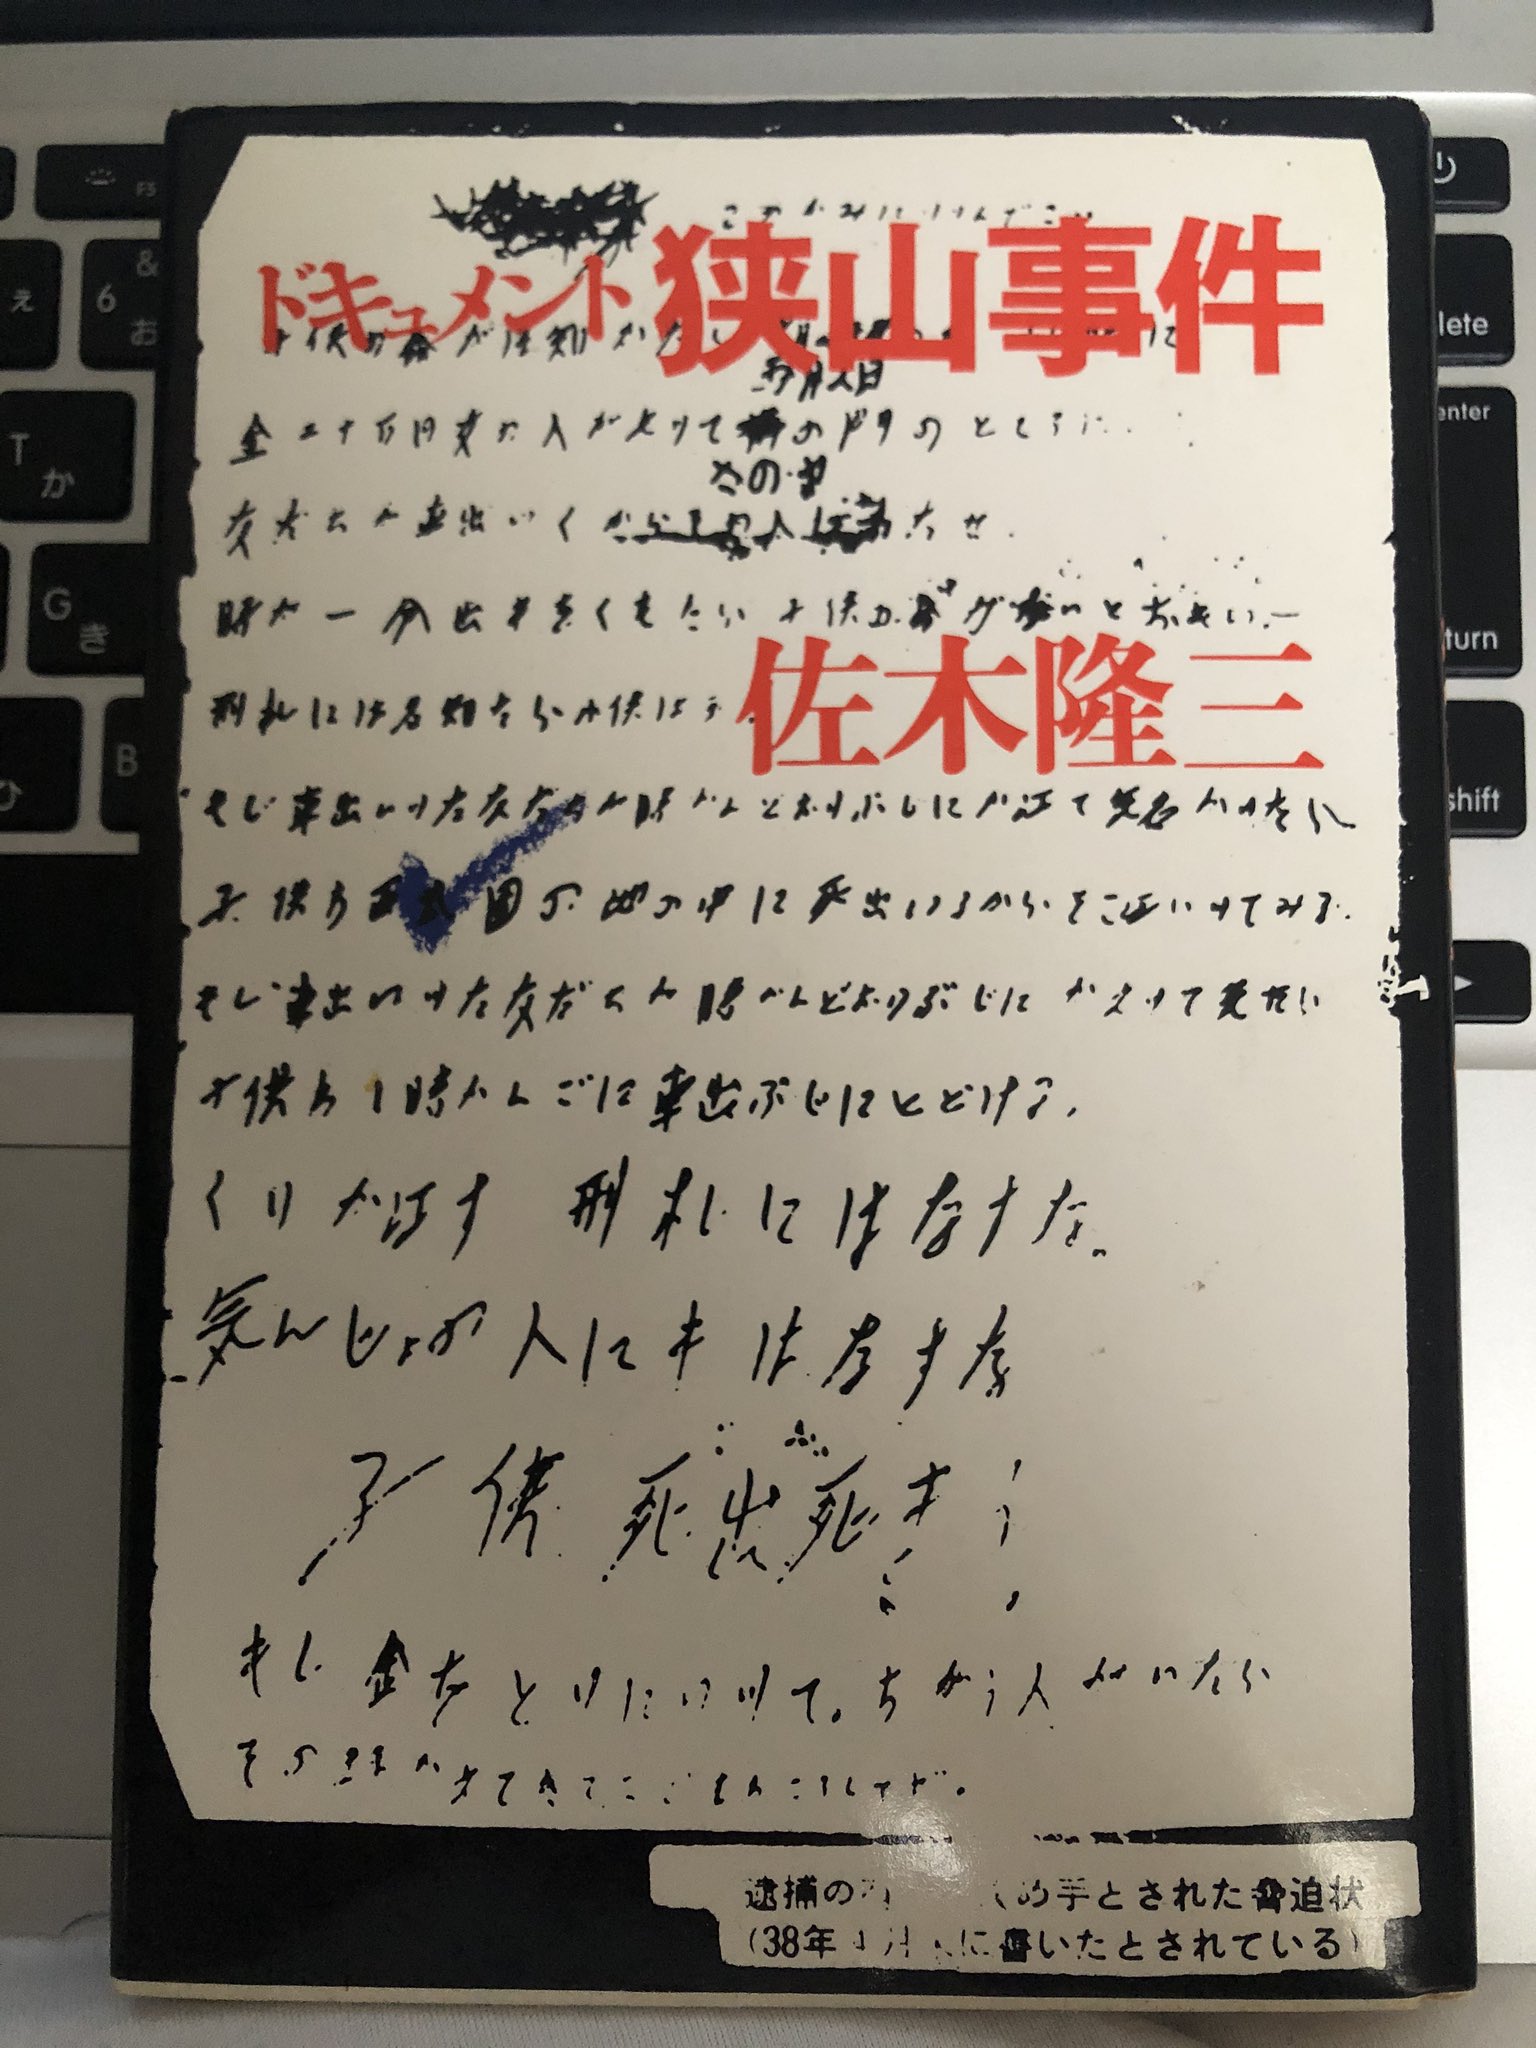 ドキュメント 狭山事件
五月2日
金二十万円女の人がもツて の門のところに
さのヤ
友だちが車出いくから その人に わたせ
時が一分出もをくれたら 子供の命がないとおもい.―
刑札には名知たら小供は死
もし車出いツた友だちが時かんどおりぶじにか江て気名かツたら
子供わ西武園の池の中に死出いるからそこ江いツてみろ.
もし車出いツた友だちが時かんどおりぶじにかえツて気たら
子供わ1時かんごに車出ぶじにとどける.
くりか江す 刑札にはなすな.
気んじょの人にもはなすな
子供死出死まう
もし金をとりにいツて。ちがう人がいたら
佐木隆三
逮捕の め手とされた脅迫状
(38年 に書いたとされている)
&
6
お
え
T
か
G
き
B
ひ
F5
lete
enter
turn
shift